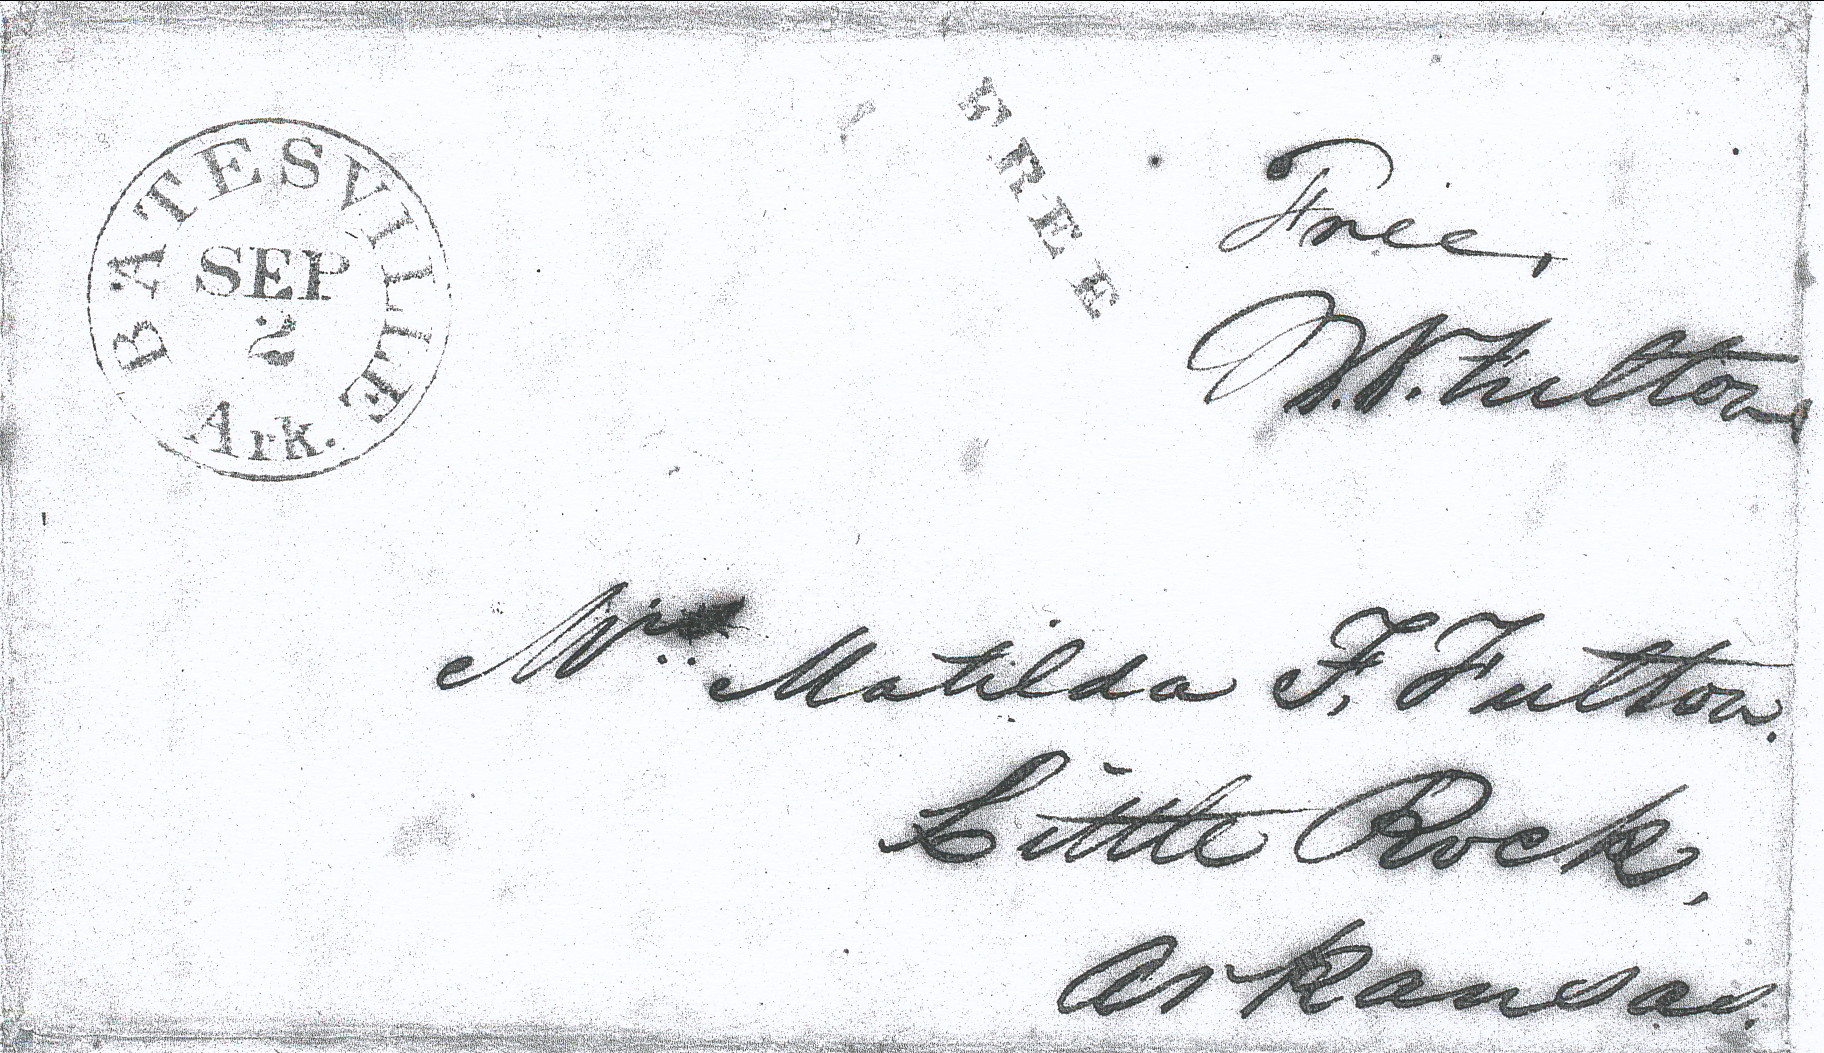 BATESVILLE
SEP
2
Ark.
FREE
Free,
W. S. Fulton
Mrs. Matilda F. Fulton.
Little Rock,
Arkansas.